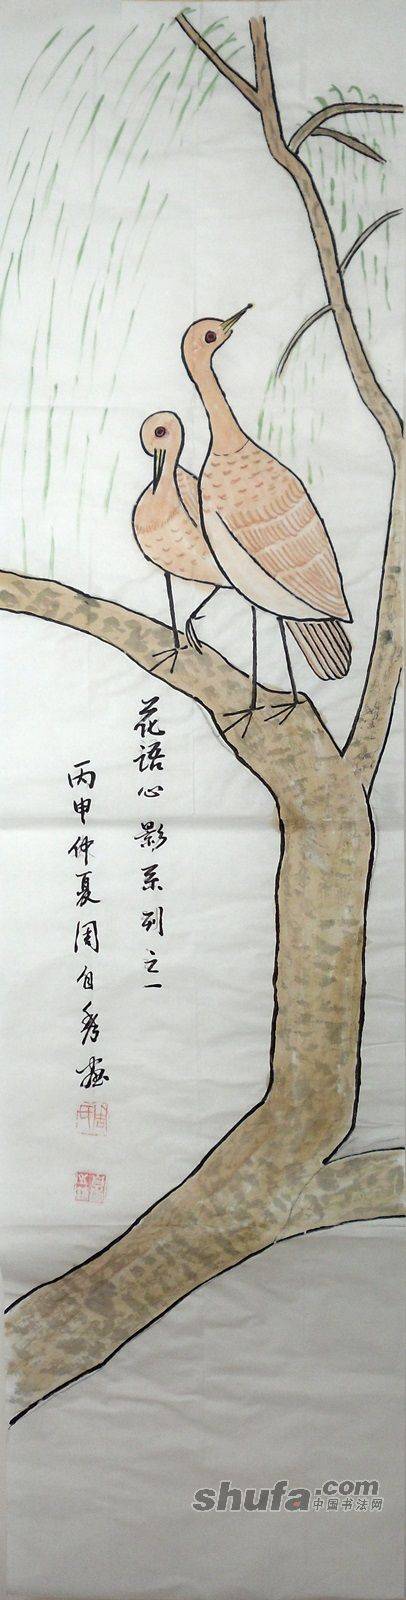 花语心影系列之一
丙申仲夏周自秀画
shufa.com
中国书法网